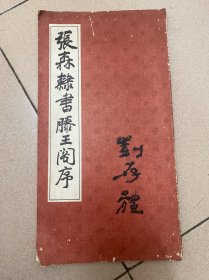 張森隸書滕王阁序
劉存體